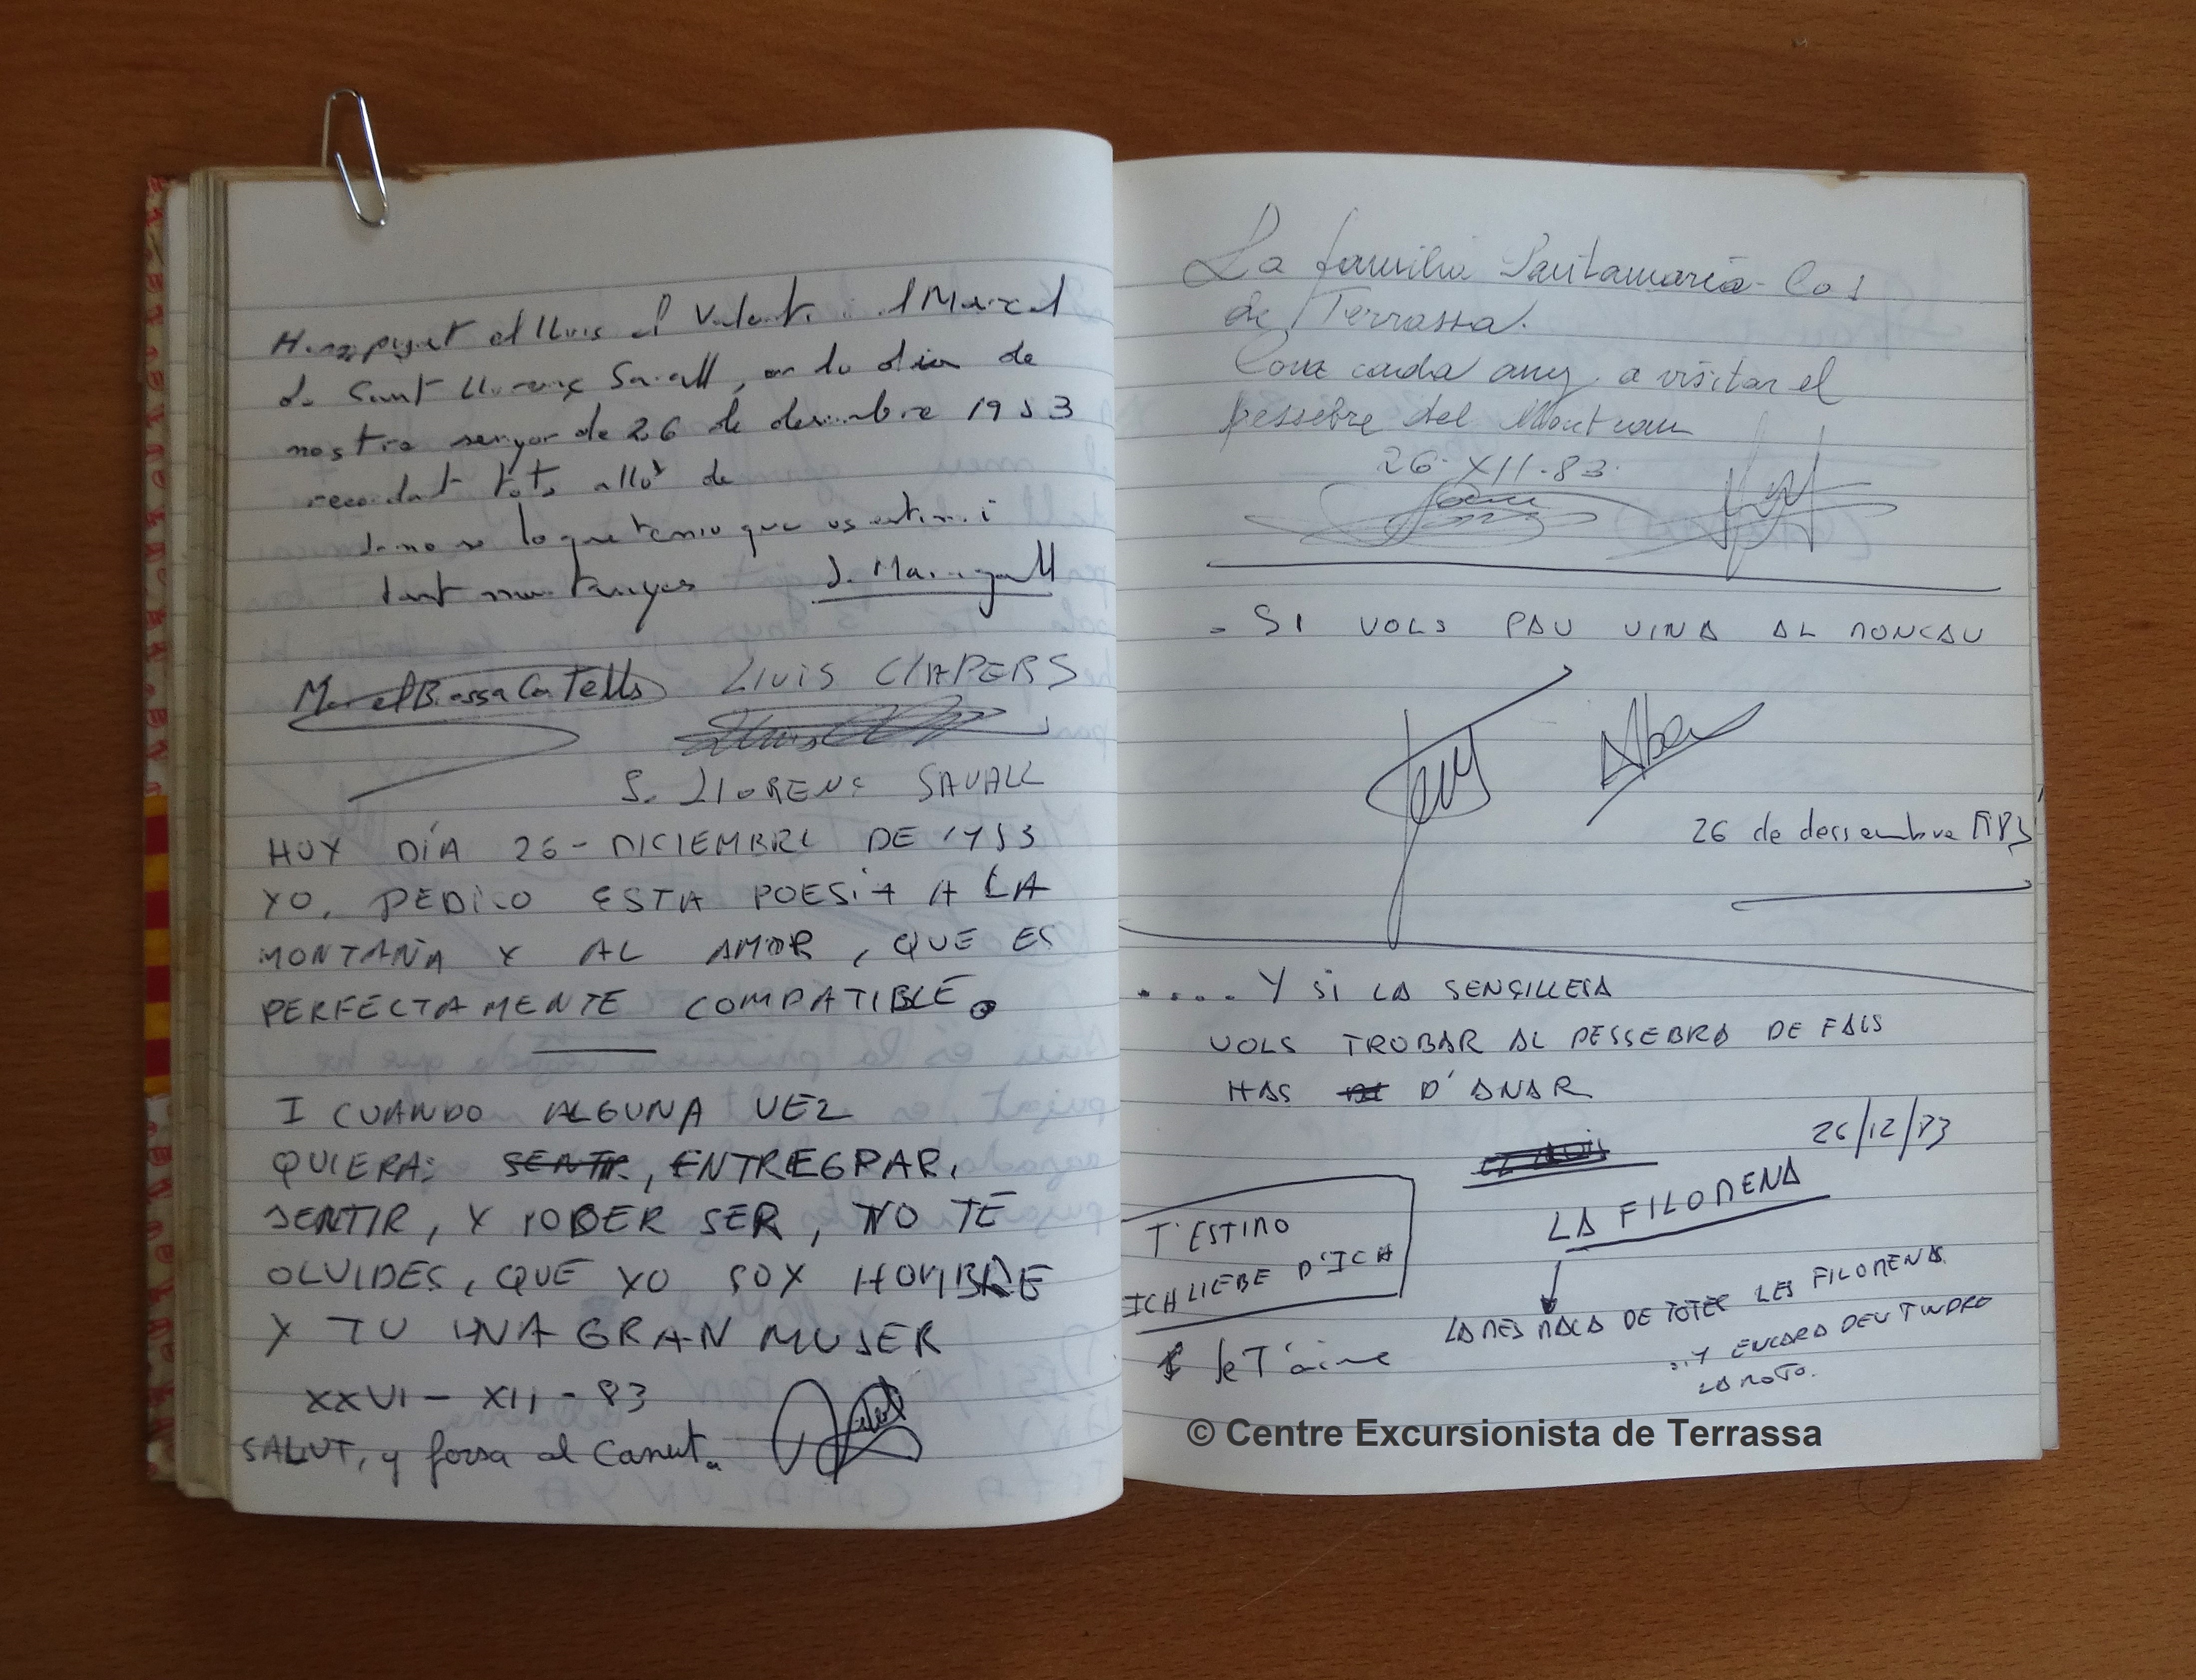 Hem pujat el Lluis el Valenti i el Marcel
de Sant Llorenç Savall, en lo dia de
nostre senyor de 26 de desembre 1983
recordant tots allò de
lo que tenio que us estimi
tant muntanyes J. Maragall
Marcel Brossa Castells LLUIS CLAPERS
S. LLORENÇ SAVALL
HUY DÍA 26-DICIEMBRE DE 1983
YO, DEDICO ESTA POESIA A LA
MONTAÑA Y AL AMOR, QUE ES
PERFECTAMENTE COMPATIBLE.
I CUANDO ALGUNA VEZ
QUIERA: SENTIR, ENTREGPAR,
SENTIR, Y PODER SER, NO TE
OLVIDES, QUE YO SOY HOMBRE
Y TU UNA GRAN MUJER
XXVI - XII - 83
SALUT, y forsa al Canut.
La familia Santamaria-Cos
de Terrassa.
Com cada any a visitar el
pessebre del Montcau
26-XII-83.
- SI VOLS PAU VINA AL MONCAU
26 de dessembre 1983
..... Y SI LA SENSILLESA
VOLS TROBAR AL PESSEBRA DE FALS
HAS D'ANAR
26/12/83
LA FILOMENA
T'ESTIMO
ICH LIEBE D'ICH
Je T'aime
LA MES MACA DE TOTES LES FILOMENAS
..Y ENCARA DEU TINDRE
LA MOTO.
© Centre Excursionista de Terrassa